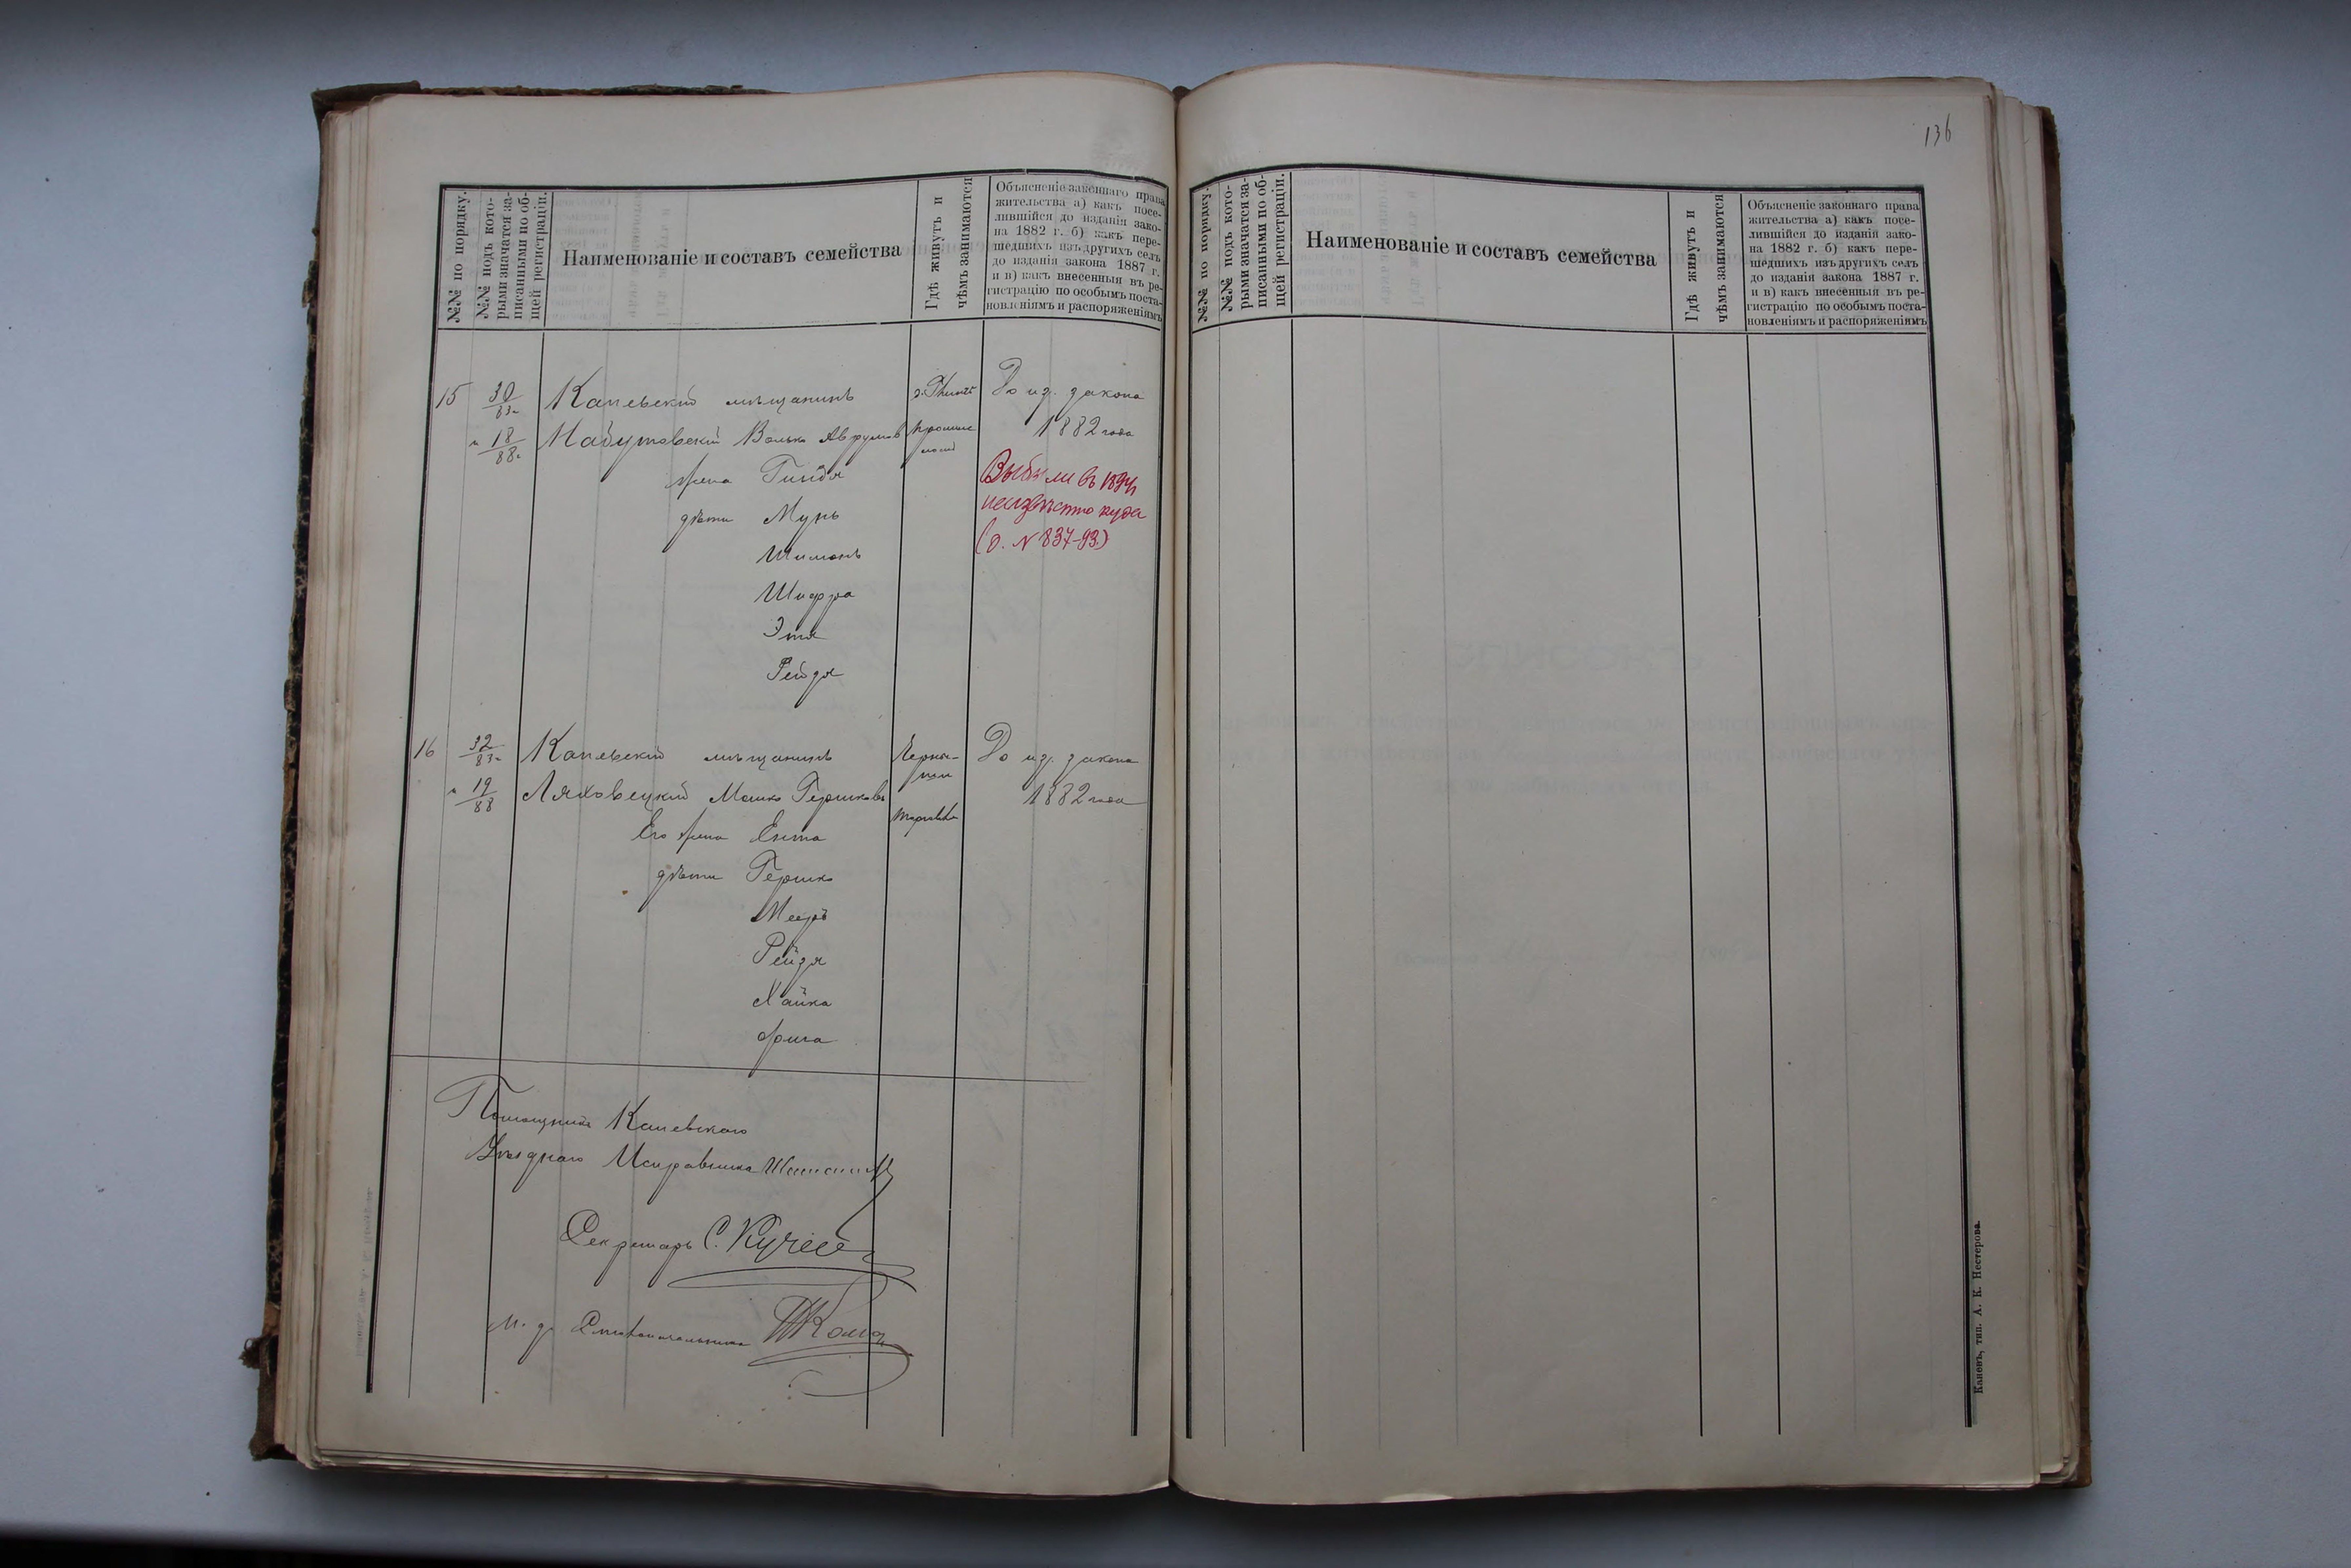 136
№№ по порядку.
№№ подъ кото-
рыми значатся за-
писанными по об-
щей регистраціи.
Наименованіе и составъ семейства
Гдѣ живутъ и
чѣмъ занимаются
Объясненіе законнаго права
жительства а) какъ посе-
лившійся до изданія зако-
на 1882 г. б) какъ пере-
шедшихъ изъ другихъ селъ
до изданія закона 1887 г.
и в) какъ внесенныя въ ре-
гистрацію по особымъ поста-
новленіямъ и распоряженіямъ
15 30/83 Каневскій мѣщанинъ До из. закона
и 18/88 Мабутовскій Волько Аврумовъ 1882 года
жена Гиндя
дѣти Мунь
Шимонъ
Шифра
Этя
Рейзя
Выбыли въ 1894
неизвѣстно куда
(д. № 837-93.)
16 32/83 Каневскій мѣщанинъ До из. закона
и 19/88 Ляховецкій Мошко Гершковъ 1882 года
торговля
Его жена Ента
дѣти Гершко
Мееръ
Рейзя
Хайка
Фрига
Помощникъ Каневскаго
Уѣзднаго Исправника
Секретарь С.
И. д. Столоначальника
№№ по порядку.
№№ подъ кото-
рыми значатся за-
писанными по об-
щей регистраціи.
Наименованіе и составъ семейства
Гдѣ живутъ и
чѣмъ занимаются
Объясненіе законнаго права
жительства а) какъ посе-
лившійся до изданія зако-
на 1882 г. б) какъ пере-
шедшихъ изъ другихъ селъ
до изданія закона 1887 г.
и в) какъ внесенныя въ ре-
гистрацію по особымъ поста-
новленіямъ и распоряженіямъ
Каневъ, тип. А. К. Нестерова.